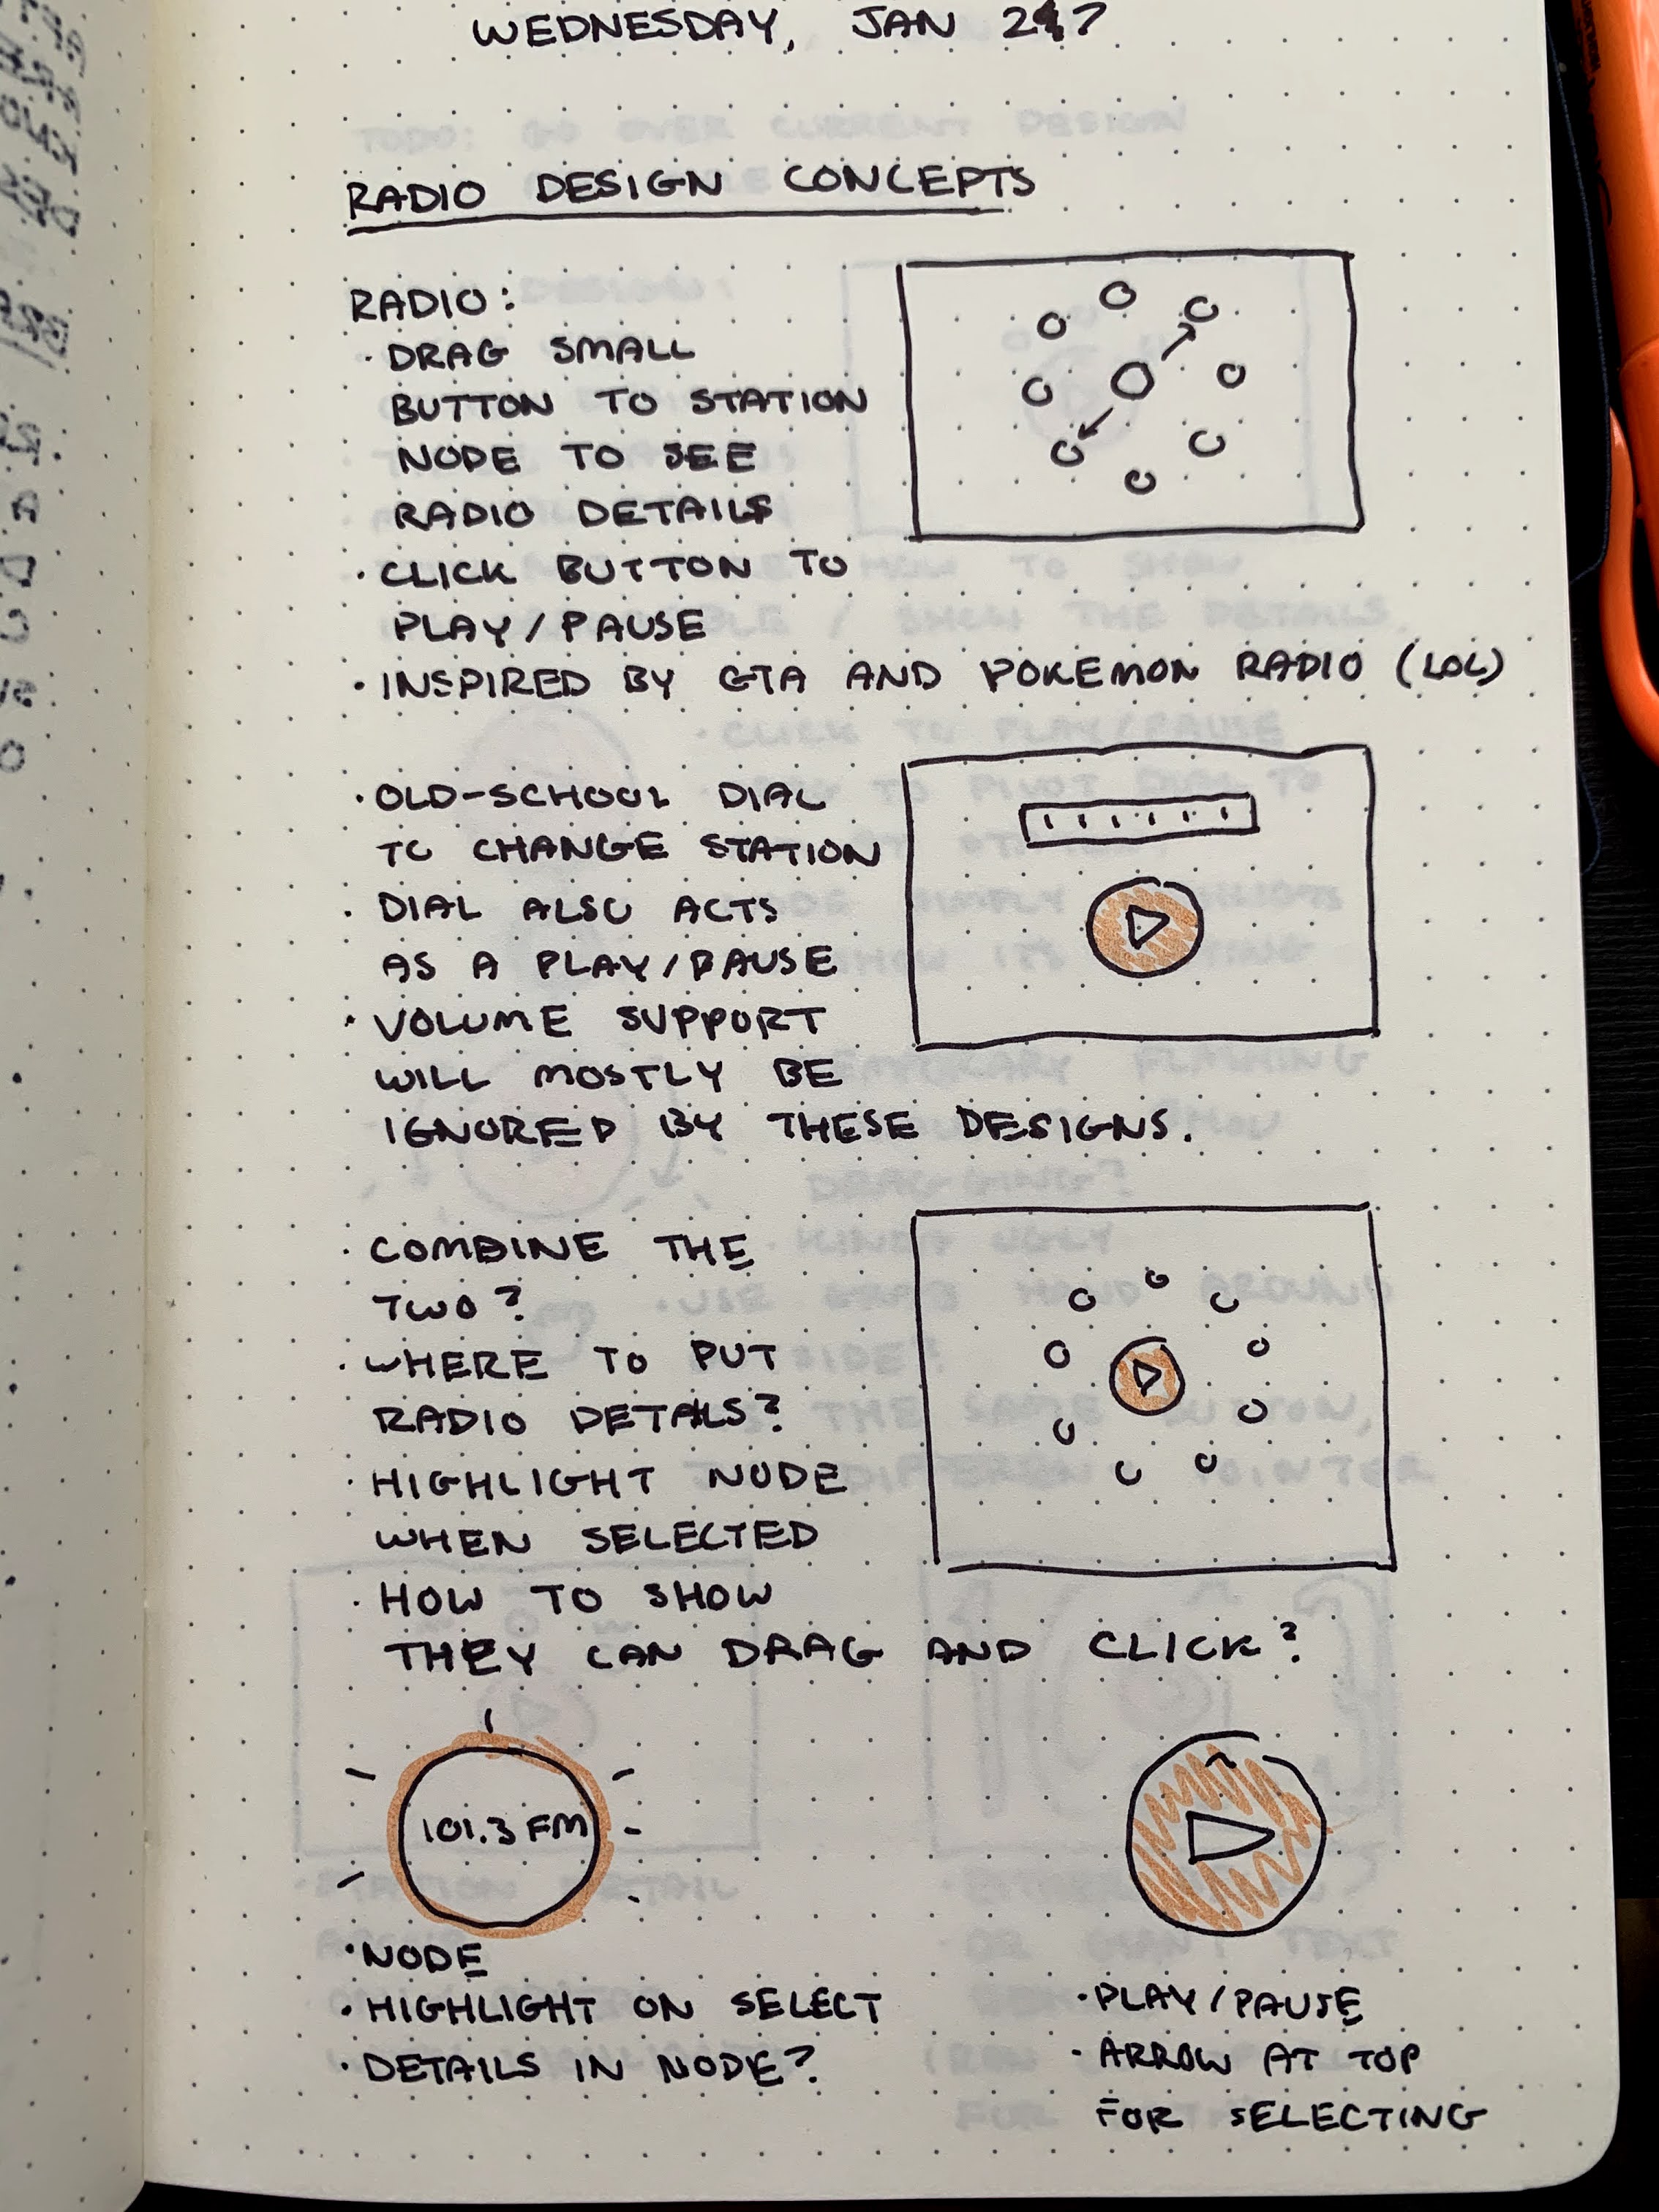 WEDNESDAY, JAN 27
RADIO DESIGN CONCEPTS
RADIO:
· DRAG SMALL
BUTTON TO STATION
NODE TO SEE
RADIO DETAILS
· CLICK BUTTON TO
PLAY/PAUSE
· INSPIRED BY GTA AND POKEMON RADIO (LOL)
· OLD-SCHOOL DIAL
TO CHANGE STATION
· DIAL ALSO ACTS
AS A PLAY/PAUSE
· VOLUME SUPPORT
WILL MOSTLY BE
IGNORED BY THESE DESIGNS.
· COMBINE THE
TWO?
· WHERE TO PUT
RADIO DETAILS?
· HIGHLIGHT NODE
WHEN SELECTED
· HOW TO SHOW
THEY CAN DRAG AND CLICK?
101.3 FM
· NODE
· HIGHLIGHT ON SELECT
· DETAILS IN NODE?
· PLAY/PAUSE
· ARROW AT TOP
FOR SELECTING